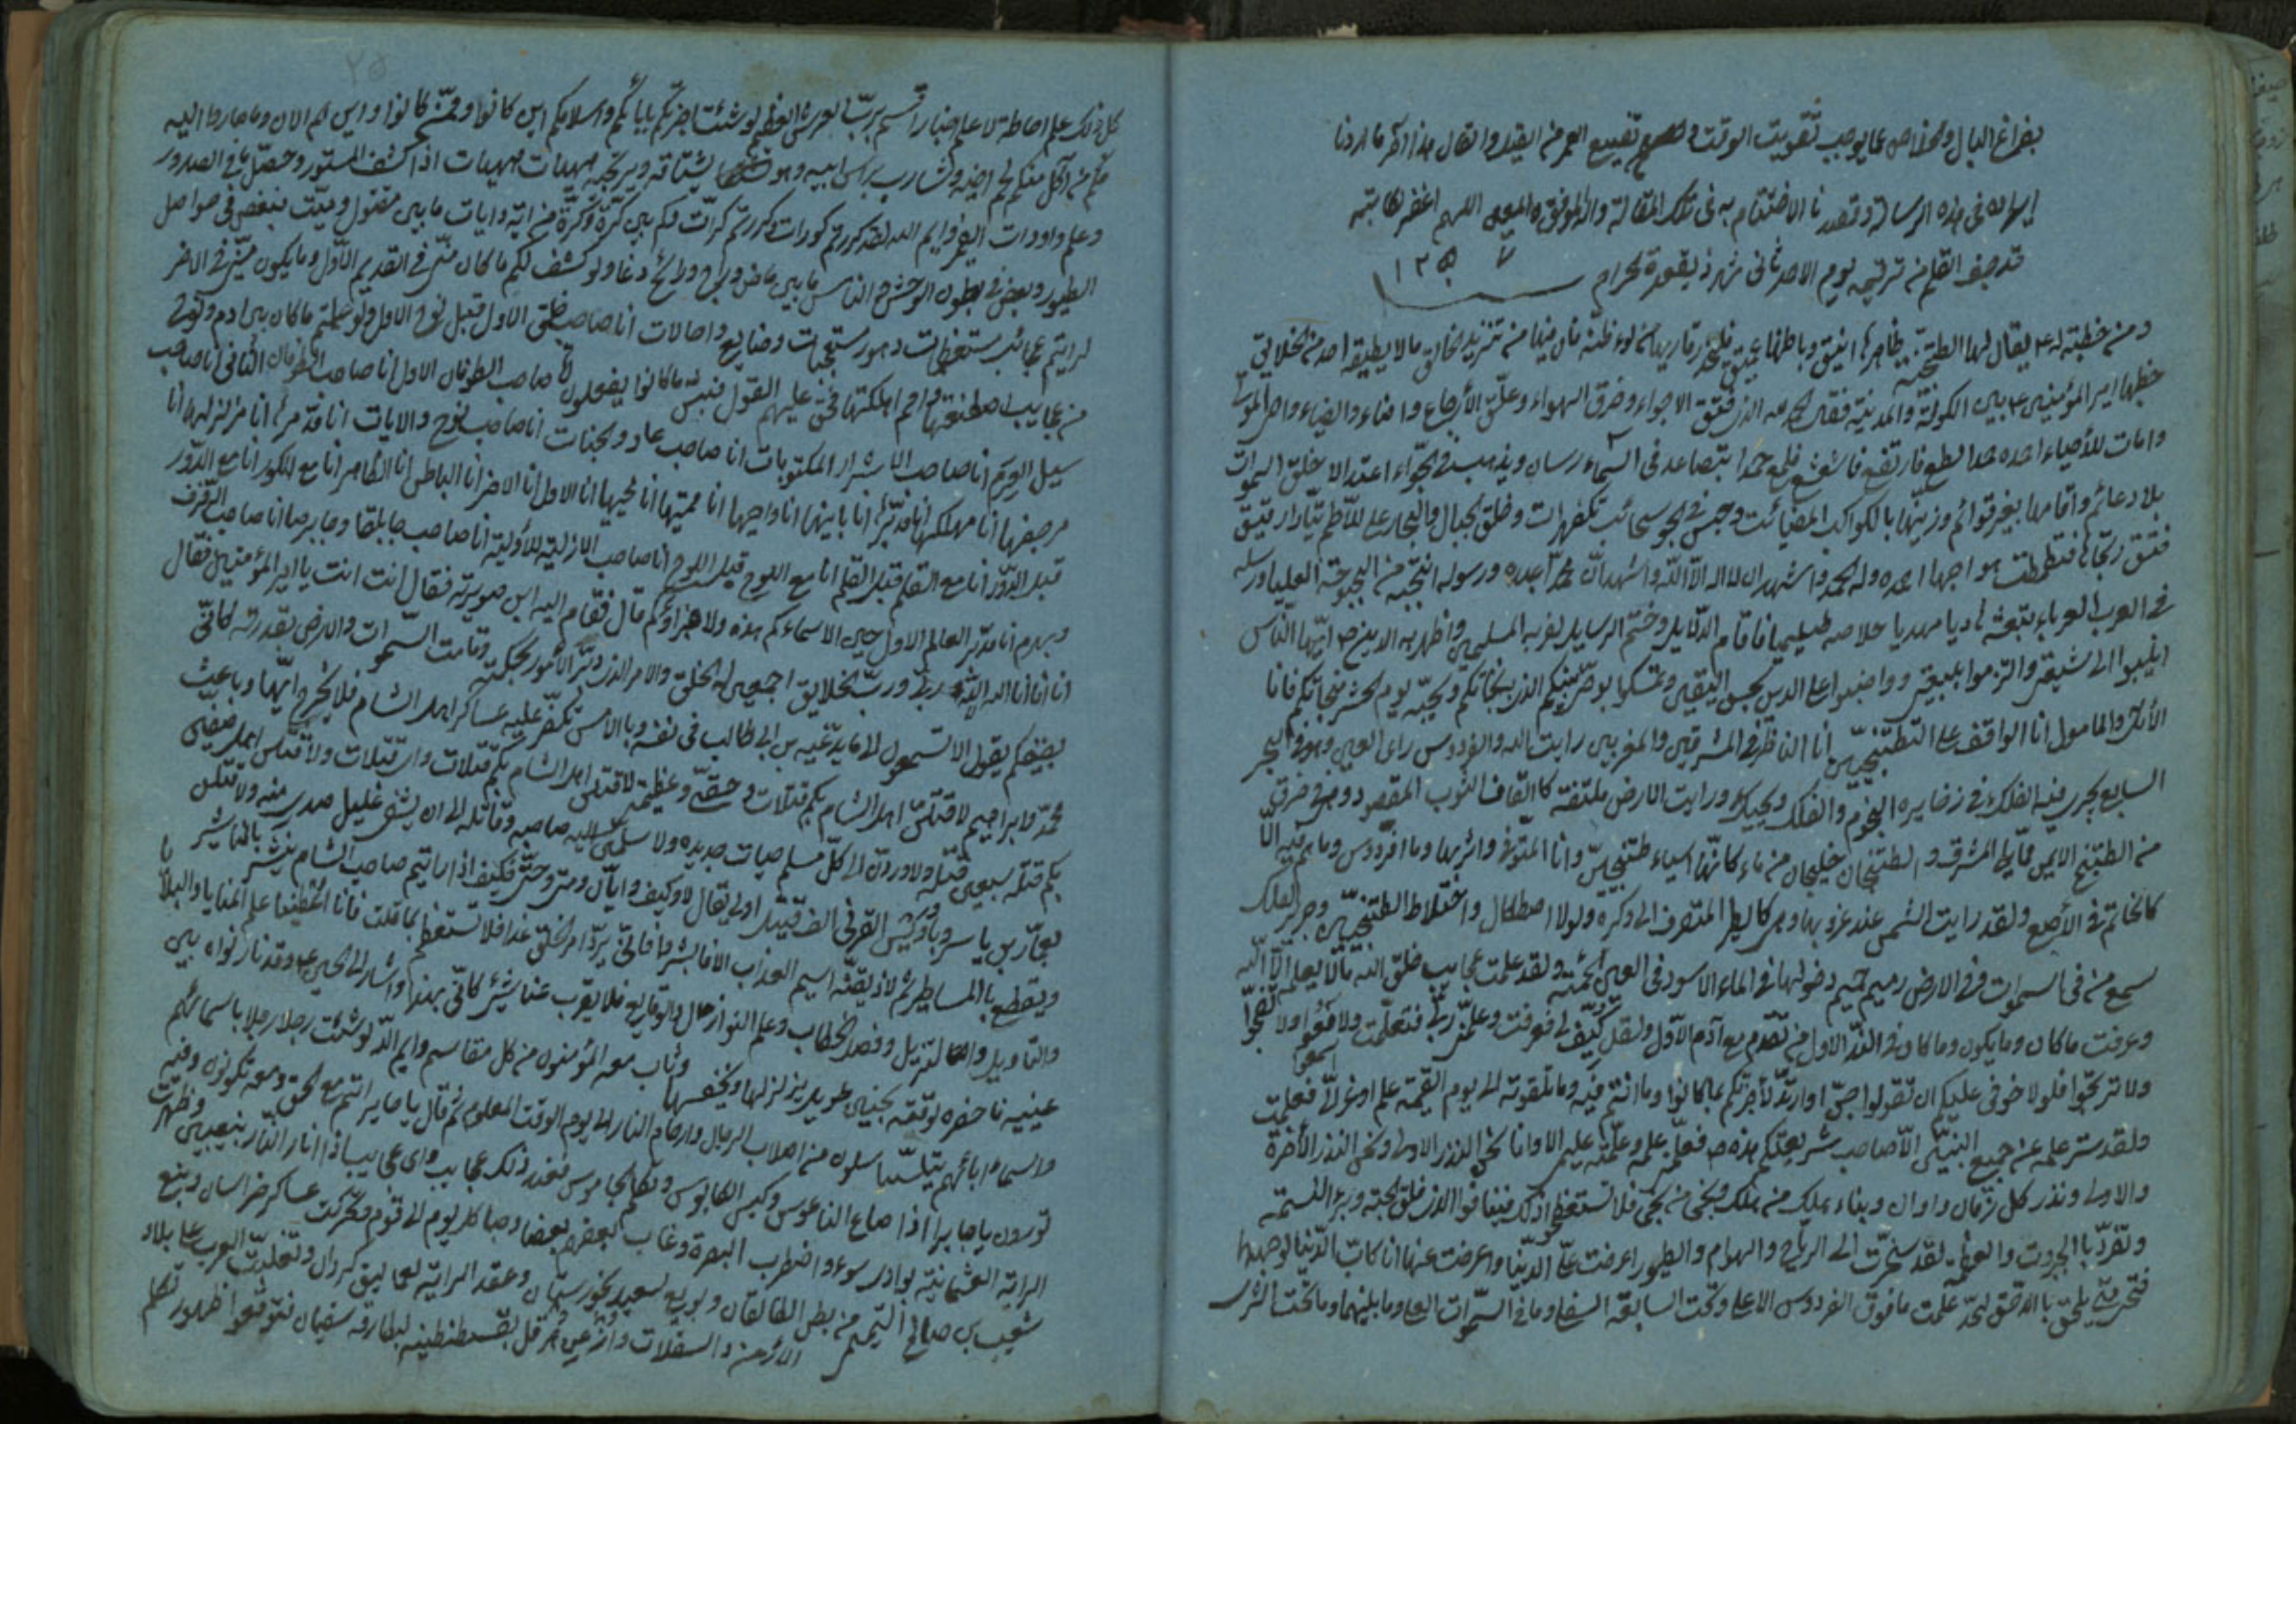 بفراغ البال والخلاص عما يوجب تفويت الوقت و تضييع العمر من القيل والقال هذا آخر ما اردنا
ايراده فى هذه الرسالة وقصدنا الاختتام به فى تلك المقالة والله الموفق والمعين اللهم اغفر لكاتبه
قد جف القلم من ترقيمه يوم الاحد ثانى شهر ذيقعدة الحرام
ومن خطبته له ع يقال لها الطتنجيه ظاهرها انيق وباطنها عميق فليحذر قاريها من سوء ظنه فان فيها من تنزيه الخالق مالا يطيقه احد من الخلايق
خطبها امير المؤمنين ع بين الكوفة والمدينة فقال الحمد لله الذى فتق الاجواء وخرق الهواء وعلق الأرجاء واضاء الضياء واحى الموتى
وامات الأحياء احمده حمدا سطع فارتفع وشعشع فلمع حمدا يتصاعد فى السماء ارسالا ويذهب فى الجو اعتدالا خلق السموات
بلا دعائم واقامها بغير قوائم وزينها بالكواكب المضيئات وحبس فى الجو سحائب مكفهرات وخلق الجبال والبحار على تلاطم تيار رقيق
فتق رتاجها فتغطمطت امواجها احمده وله الحمد واشهد ان لا اله الا الله واشهد ان محمدا عبده ورسوله انتجبه من البحبوحة العليا وارسله
فى العرب العرباء ابتعثه هاديا مهديا حلاحلا طليسما فاقام الدلايل وختم الرسايل نصر به المسلمين واظهر به الدين ص ايها الناس
انيبوا الى شيعتى والتزموا بيعتى وواظبوا على الدين بحسن اليقين وتمسكوا بوصى نبيكم الذى به نجاتكم وبحبه يوم الحشر منجاتكم فانا
الأمل والمامول انا الواقف على التطنجين انا الناظر فى المشرقين والمغربين رايت الله والفردوس راى العين وهو فى البحر
السابع يجرى فيه الفلك فى زخايره النجوم والفلك والحبك ورايت الارض ملتفة كالتفاف الثوب المقصور وهى فى خزف
من الطتنج الايمن مما يلى المشرق والطتنجان خليجان من ماء كانهما ايسار طتنجين وانا المتولى دائرتها وما الفردوس وما هم فيه الا
كالخاتم فى الأصبع ولقد رايت الشمس عند غروبها وهى كالطير المنصرف الى وكره ولولا اصطكاك واختلاط الطتنجين وصرير الفلك
سمع من فى السموات والارض رميم حميم دخولها فى الماء الاسود فى العين الحمئة ولقد علمت من عجايب خلق الله مالا يعلمه الا الله
وعرفت ماكان ومايكون وماكان فى الذر الاول مع من تقدم مع آدم الاول ولقد كشف لى فعرفت وعلمنى ربى فتعلمت ولا فعوا ولا تضجوا
ولا ترتجوا فلولا خوفى عليكم ان تقولوا جن او ارتد لأخبرتكم بما كانوا وما انتم فيه وما تلقونه الى يوم القيمة علم اوعز الى فعلمت
ولقد ستر علمه عن جميع النبيين الا صاحب شريعتكم هذه ص فعلمنى علمه وعلمته علمى الا وانا نحن النذر الاولى ونحن النذر الأخرة
والاولى ونذر كل زمان واوان وبنا هلك من هلك ونجى من نجى فلا تستعظموا ذلك فينا فوالذى فلق الحبة وبرء النسمة
وتفرد بالجبروت والعظمة لقد سخرت الى الرياح والهوام والطيور واعرضت على الدنيا واعرضت عنها انا كاب الدنيا لوجهها
فحتى متى يلحق باللاحق لقد علمت ما فوق الفردوس الاعلى وتحت السابعة السفلى وما فى السموات العلى ومابينهما وماتحت الثرى
كل ذلك علم احاطة لا علم اخبار اقسم برب العرش العظيم لو شئت اخبرتكم بابائكم واسلافكم اين كانوا وممن كانوا واين هم الان وما صاروا اليه
فكم من آكل منكم لحم اخيه وشارب براس ابيه وهو يشتاقه ويرتجيه هيهات هيهات اذا كشف المستور وحصل ما فى الصدور
وعلم واردات الضمير وايم الله لقد كورتم كورات وكررتم كرات وكم بين كرة وكرة من اية وايات مابين مقتول وميت فبعض فى حواصل
الطيور وبعض فى بطون الوحش والناس مابين ماض وراج ورائح وغاد ولو كشف لكم ماكان منى فى القديم الاول ومايكون منى فى الاخر
لرايتم عجائب مستعظمات وامور مستعجبات وصنايع واحالات انا صاحب الخلق الاول قبل نوح الاول ولو علمتم ماكان بين ادم ونوح
من عجايب اصطنعتها وامم اهلكتها فحق عليهم القول فبئس ماكانوا يفعلون انا صاحب الطوفان الاول انا صاحب الطوفان الثانى انا صاحب
سيل العرم انا صاحب الاسرار المكتوبات انا صاحب عاد والجنات انا صاحب ثمود والايات انا مدمرها انا مزلزلها انا
مرجعها انا مهلكها انا مدبرها انا بانيها انا داحيها انا مميتها انا محييها انا الاول انا الاخر انا الباطن انا الظاهر انا مع الكور انا مع الدور
قبل الدور انا مع القلم قبل القلم انا مع اللوح قبل اللوح انا صاحب الازلية الأولية انا صاحب جابلقا وجابرصا انا صاحب الرفرف
وبهرم انا مدبر العالم الاول حين لا سماءكم هذه ولا غبراؤكم قال فقام اليه ابن صويرمة فقال انت انت يا امير المؤمنين فقال
انا انا انا لا اله الا الله ربى ورب الخلايق اجمعين له الخلق والامر الذى دبر الأمور بحكمته وقامت السموات والارض بقدرته كانى
بضعيفكم يقول الا تسمعون الى مايدعيه بن ابى طالب فى نفسه وبالامس تكفهر عليه عساكر اهل الشام فلا يخرج اليها وباعث
محمد وابراهيم لاقتلن اهل الشام بكم قتلات وحقى وعظمتى لاقتلن اهل الشام بكم قتلات واى قتلات ولاقتلن اهل صفين
بكل قتلة سبعين قتلة ولاوردن الى كل مسلم حيات جديده ولاسلمن اليه صاحبه وقاتله الى ان يشفى غليل صدرى منه ولاقتلن
بعمار بن ياسر وباويس القرنى الف قتيل اولى يقال لا وكيف واين ومتى وحتى فكيف اذا رايتم صاحب الشام ينشر بالمناشير
ويقطع بالمساطير ثم لاذيقنه اليم العذاب الا فابشروا فالى يرد امر الخلق غدا فلا تستعظموا بما قلت فانا اعطينا علم المنايا والبلايا
والتاويل والتنزيل وفصل الخطاب وعلم النوازل والوقايع فلا يعزب عنا شىء كانى بهذا واشار الى الحسين ع وقد نار نوره بين
عينيه فاحضره لوقته بحنين طويل يزلزلها ويخسفها وثاب معه المؤمنون من كل مقام وايم الله لو شئت رجلا رجلا باسمائهم
واسماء ابائهم يتناسلون من اصلاب الرجال وارحام النساء الى يوم الوقت المعلوم ثم قال يا جابر انتم مع الحق ومعه تكونون وفيه
تموتون يا جابر اذا صاح الناقوس وكبس الكابوس وتكلم الجاموس فعند ذلك عجايب واى عجايب اذا انار النار بنصيبين وظهرت
الراية العثمانية بوادى سوداء واضطرب البصرة وغلب بعضهم بعضا وصبا كل قوم الى قوم وتحركت عساكر خراسان وتبع
شعيب بن صالح التميمى من بطن الطالقان وبويع لسعيد بخوزستان وعقد الراية لعماليق كردان وتغلبت العرب على بلاد
الأرمن والسقلاب واذعن هرقل بقسطنطينه لبطارقة سفيان فتوقعوا ظهور تكلم